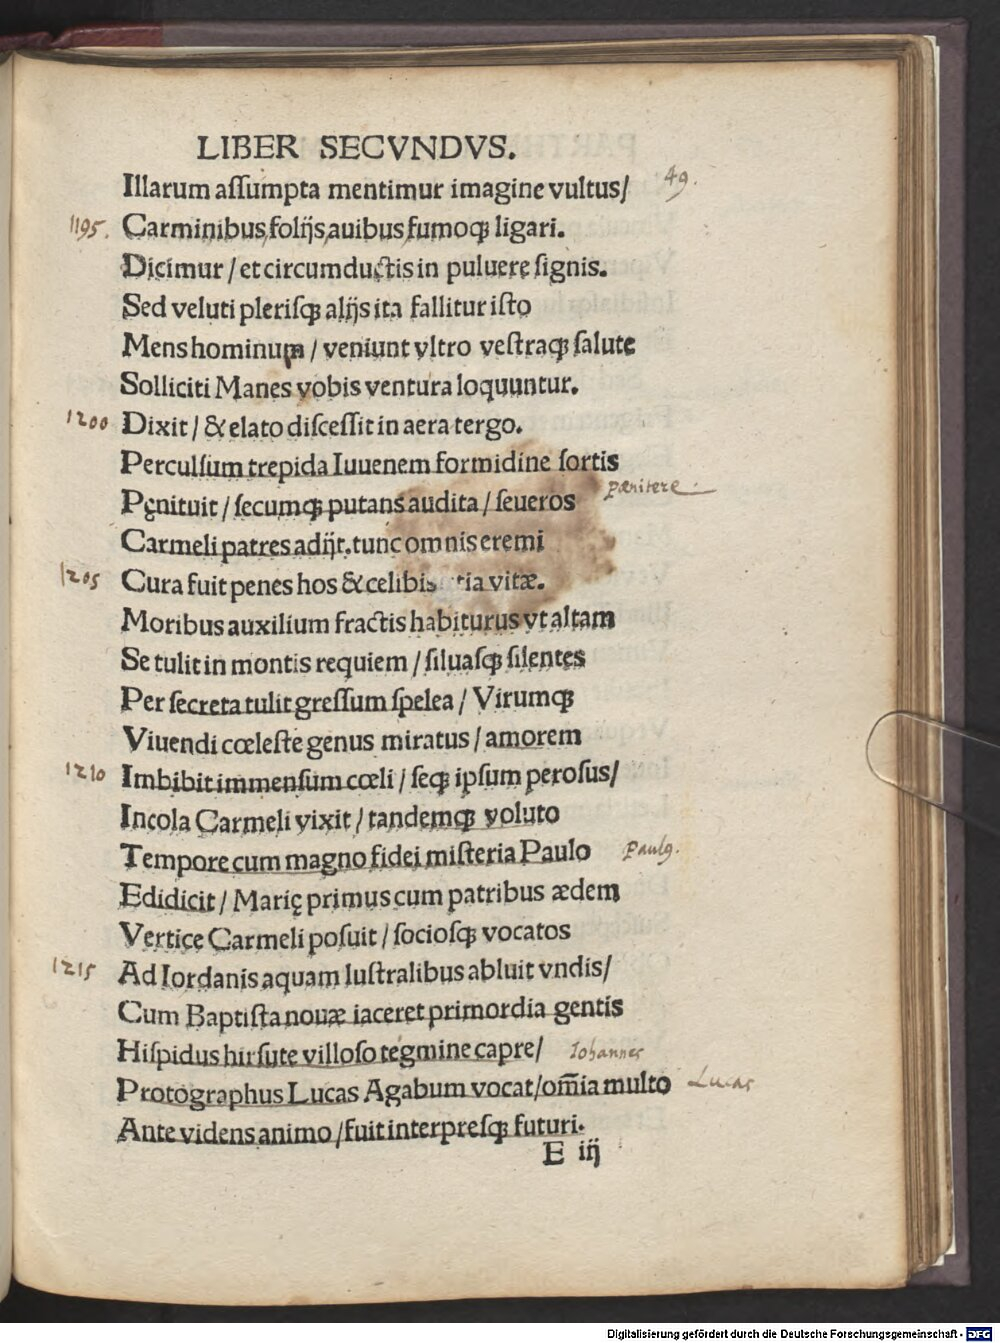 LIBER SECVNDVS.
Illarum assumpta mentimur imagine vultus/ 49.
1195. Carminibus,folijs,auibus,fumoqꝫ ligari.
Dicimur / et circumductis in puluere signis.
Sed veluti plerisqꝫ alijs ita fallitur isto
Mens hominum / veniunt vltro vestraqꝫ salute
Solliciti Manes vobis ventura loquuntur.
1200 Dixit / & elato discessit in aera tergo.
Perculsum trepida Iuuenem formidine sortis
Pęnituit / secumqꝫ putans audita / seueros pænitere
Carmeli patres adijt. tunc omnis eremi
1205 Cura fuit penes hos & celibis vitæ.
Moribus auxilium fractis habiturus vt altam
Se tulit in montis requiem / siluasqꝫ silentes
Per secreta tulit gressum spelea / Virumqꝫ
Viuendi cœleste genus miratus / amorem
1210 Imbibit immensum cœli / seqꝫ ipsum perosus/
Incola Carmeli vixit / tandemqꝫ voluto
Tempore cum magno fidei misteria Paulo Paulꝯ.
Edidicit / Marię primus cum patribus ædem
Vertice Carmeli posuit / sociosqꝫ vocatos
1215 Ad Iordanis aquam lustralibus abluit vndis/
Cum Baptista nouæ iaceret primordia gentis
Hispidus hirsute villoso tegmine capre/ Iohannes
Protographus Lucas Agabum vocat/om̄ia multo Lucas
Ante videns animo /fuit interpresqꝫ futuri.
E iij
Digitalisierung gefördert durch die Deutsche Forschungsgemeinschaft - DFG